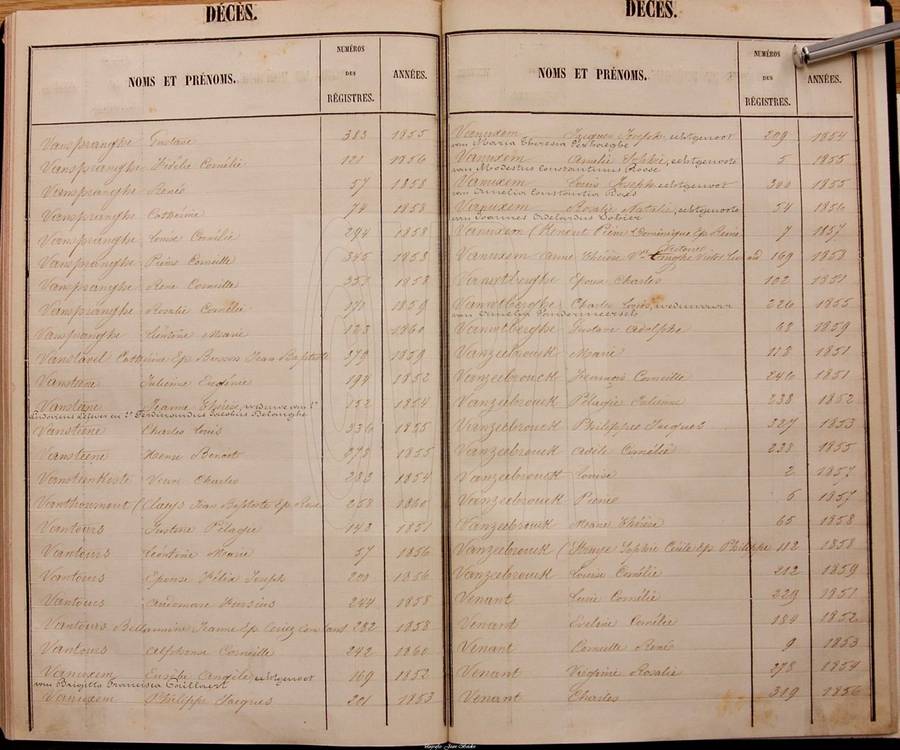 DÉCÈS.
NOMS ET PRÉNOMS. NUMÉROS DES RÉGISTRES. ANNÉES.
Vanspranghe Gustave 383 1855
Vanspranghe Fidèle Cornélie 121 1856
Vanspranghe René 57 1858
Vanspranghe Catherine 74 1858
Vanspranghe Louise Cornélie 294 1858
Vanspranghe Pierre Corneille 345 1858
Vanspranghe René Corneille 353 1858
Vanspranghe Rosalie Cornélie 171 1859
Vanspranghe Léontine Marie 123 1860
Vanstavel Catherine Ep Jean Baptiste 379 1859
Vanstene Julienne Eugénie 194 1852
Vanstene Jeanne Thérèse, weduwe van 1°
152 1854
Ludovicus en 2° Ferdinandus Jacobus Belanghe
Vanstene Charles Louis 336 1855
Vansteene Henri Benoit 273 1855
Vanstenkeste Henri Charles 283 1854
Vanthournout ( Clays Jean Baptiste Ep Rose 258 1860
Vantours Justine Pélagie 143 1851
Vantours Léontine Marie 57 1856
Vantours Eponse Félix Joseph 200 1856
Vantours Andomare Fursius 244 1858
Vantours Bellaminine Jeanne Ep 282 1858
Vantours Alphonse Corneille 242 1860
Vanuxem Eusèbe Angèle, echtgenoot 169 1852
van Brigitta Francisca Coullaert
Vanuxem Philippe Jacques 201 1853
DÉCÈS.
NOMS ET PRÉNOMS. NUMÉROS DES RÉGISTRES. ANNÉES.
Vanuxem Jacques Joseph, echtgenoot 209 1854
van Maria Theresia
Vanuxem Amélie Sophie, echtgenoote 5 1855
van Modestus Constantinus Rosse
Vanuxem Louis Joseph echtgenoot 300 1855
van Amelia Constantia
Vanuxem Rosalie Natalie, echtgenoote 54 1856
van Joannes
Vanuxem ( Henout Pierre Dominique Ep Reine 7 1857
Vanuxem Anne Thérèse Ve Victor 169 1858
Vanwtberghe Epoux Charles 102 1851
Vanwtberghe Charles Louis, weduwnaar 226 1855
van Amelia Vandenmeersch
Vanwtberghe Gustave Adolphe 1859
Vanzeebrouck Marie 118 1851
Vanzeebrouck François Corneille 246 1851
Vanzeebrouck Pélagie Julienne 238 1852
Vanzeebrouck Philippe Jacques 327 1853
Vanzeebrouck Adèle Cornélie 238 1855
Vanzeebrouck Louise 2 1857
Vanzeebrouck Pierre 6 1857
Vanzeebrouck Marie Thérèse 65 1858
Vanzeebrouck ( Stenye Sophie Cécile Ep Philippe 112 1858
Vanzeebrouck Louise Cornélie 212 1859
Venant Louise Cornélie 229 1851
Venant Eveline Cornélie 184 1852
Venant Corneille René 9 1853
Venant Virginie Rosalie 278 1854
Venant Charles 319 1856